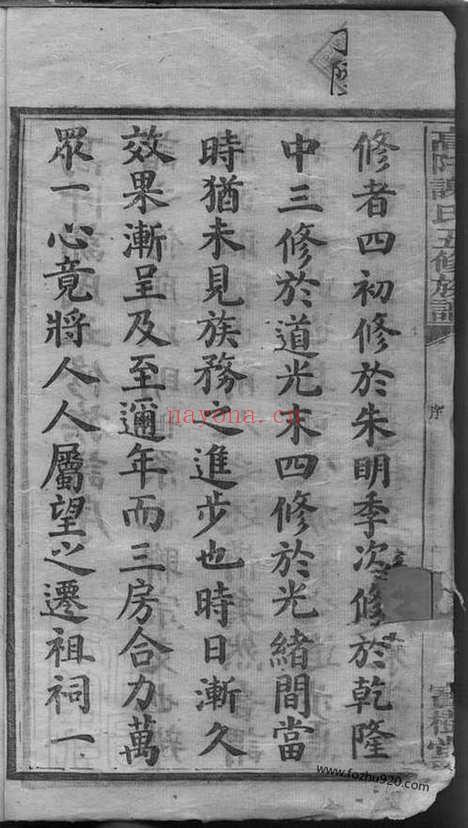 高陽許氏五修族譜
序
修者四初修於朱明季次修於乾隆
中三修於道光末四修於光緒間當
時猶未見族務之進步也時日漸久
效果漸呈及至邇年而三房合力萬
眾一心竟將人人屬望之遷祖祠一
nayona.cn
www.fozhu920.com